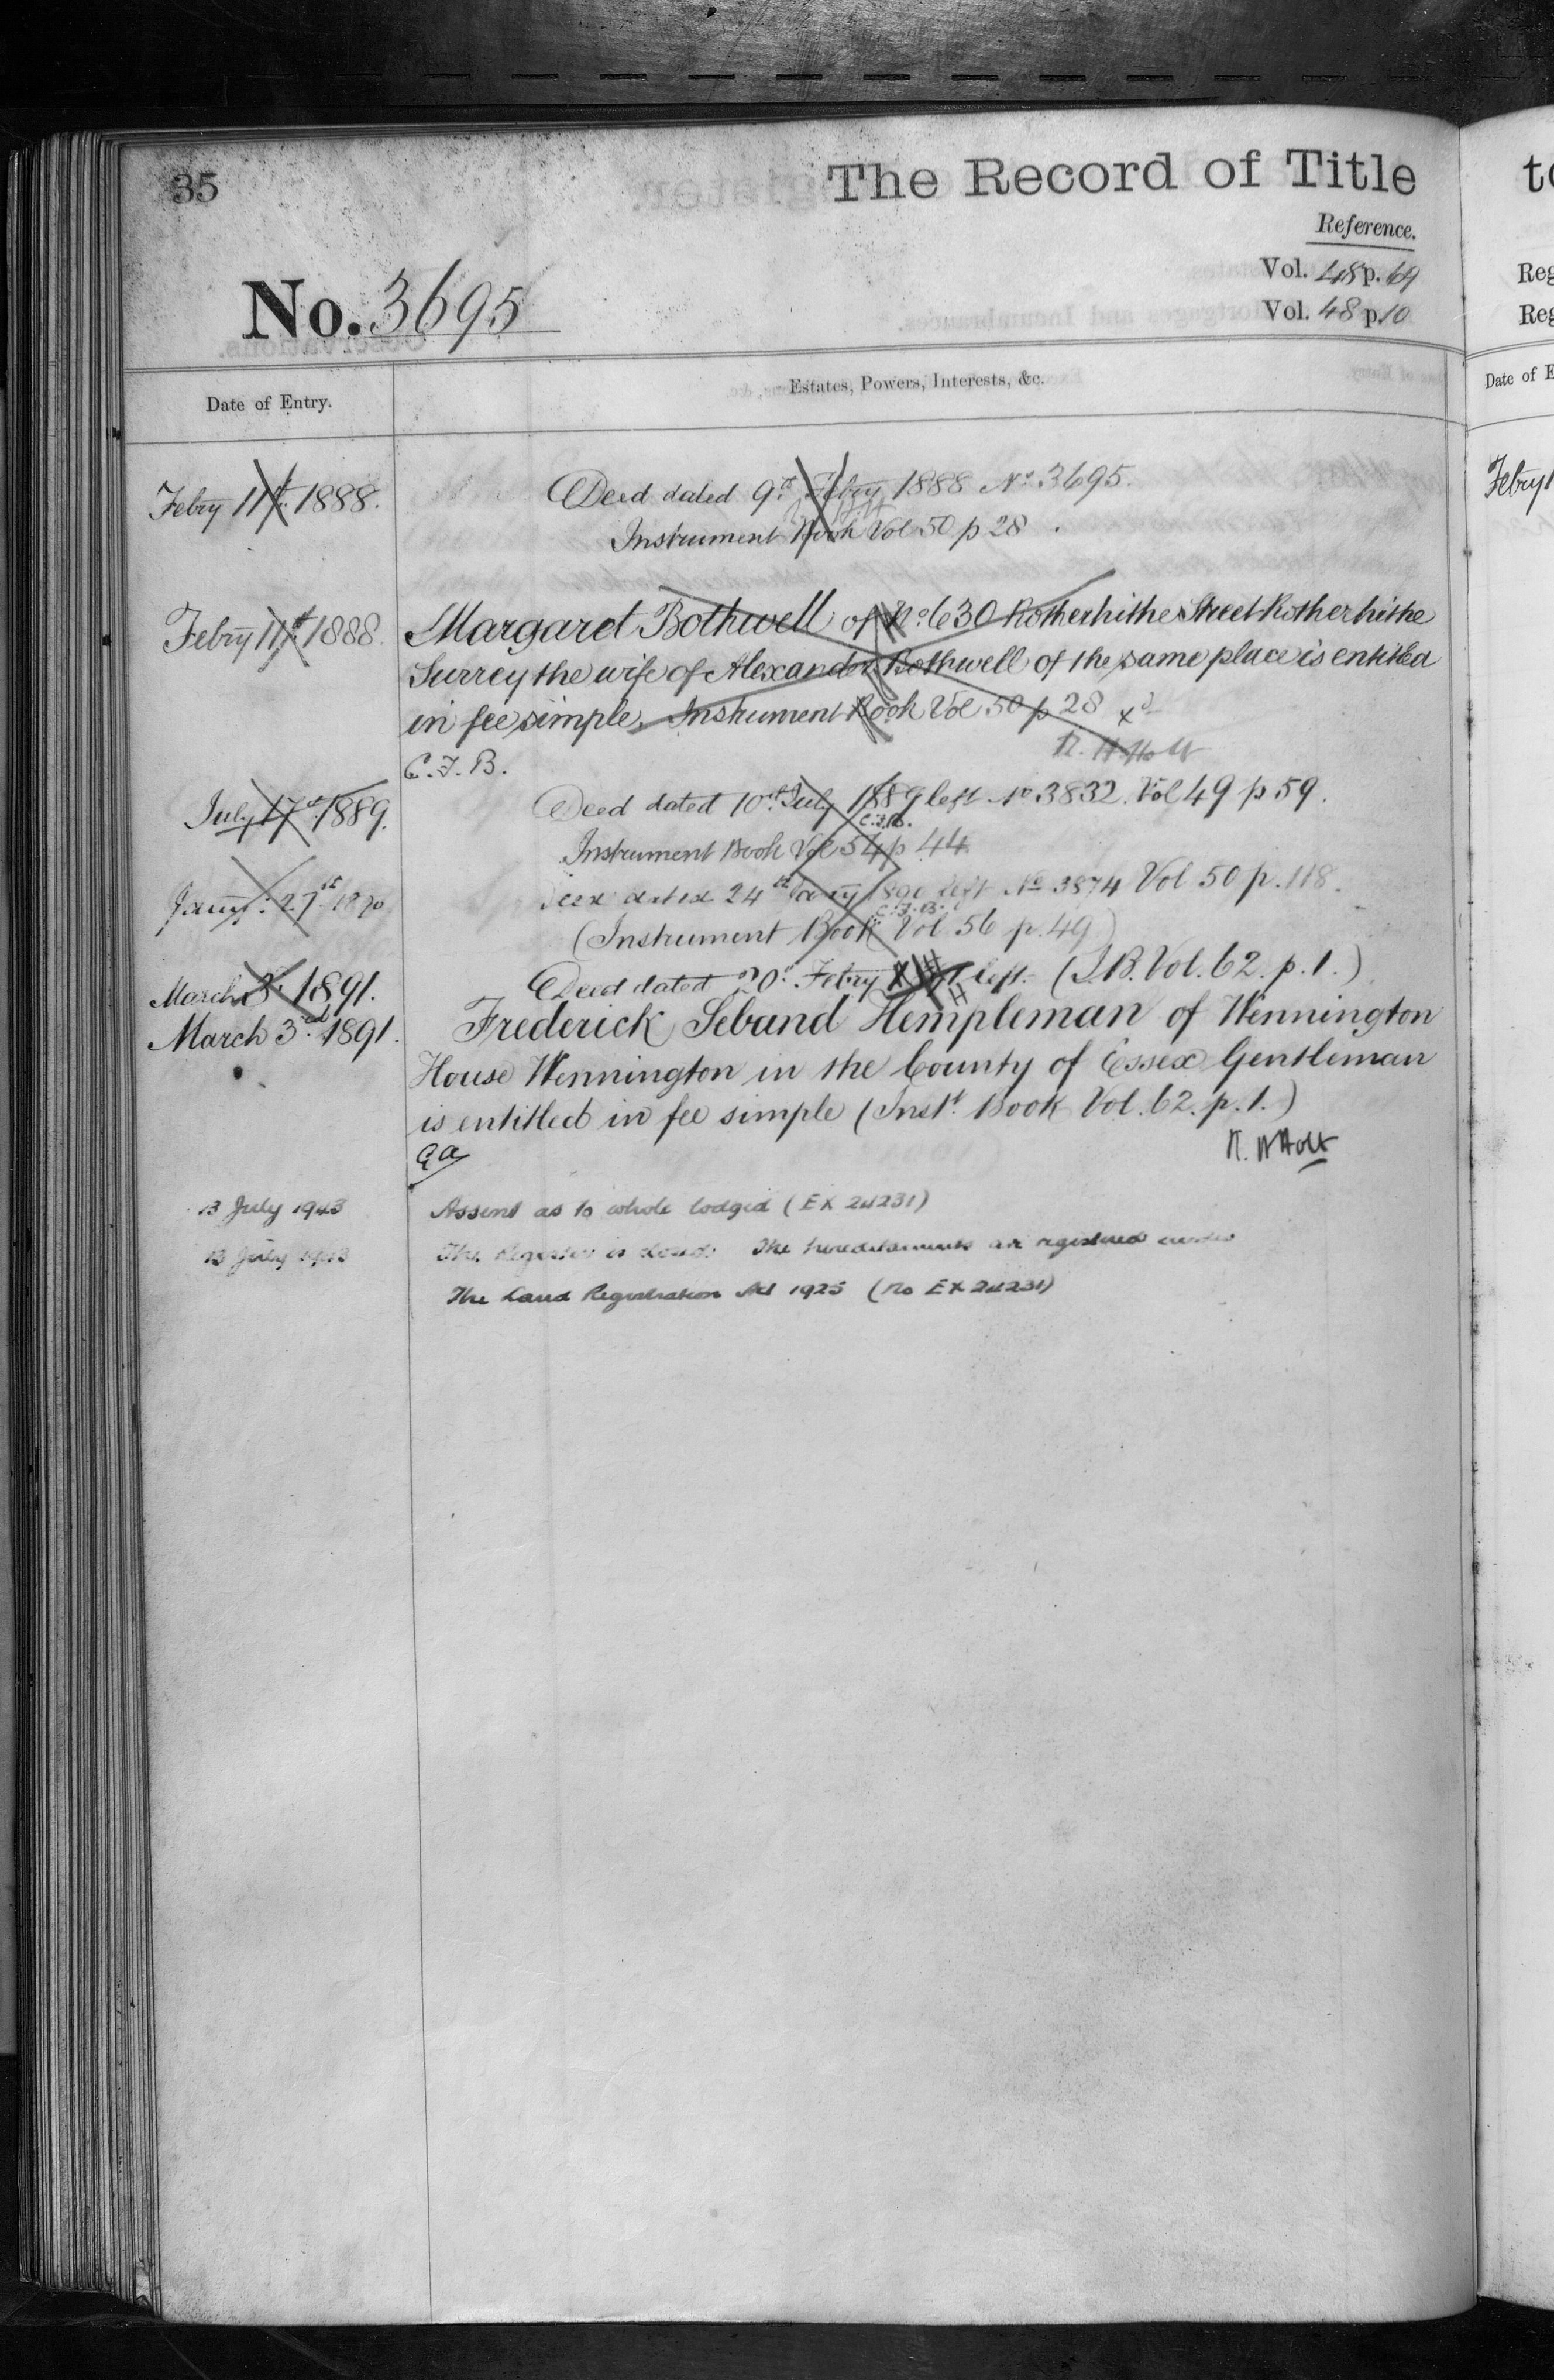 35
The Record of Title
Reference.
No. 3695
Vol. 48 p. 69
Vol. 48 p. 10
Date of Entry.
Estates, Powers, Interests, &c.
Febry 11th 1888.
Deed dated 9th Febry 1888 No 3695.
Instrument Book Vol 50 p 28.
Febry 11th 1888.
Margaret Bothwell of No 630 Rotherhithe Street Rotherhithe
Surrey the wife of Alexander Bothwell of the same place is entitled
in fee simple. Instrument Book Vol 50 p 28
R. H. Holt
C. F. B.
July 17th 1889.
Deed dated 10th July 1889 left No 3832. Vol 49 p 59.
C.F.B.
Instrument Book Vol 54 p 44.
Jany 27th 1890
Deed dated 24th Jany 1890 left No 3874 Vol 50 p. 118.
C.F.B.
(Instrument Book Vol. 56 p. 49)
March 3rd 1891.
Deed dated 20th Febry left. (I.B. Vol. 62. p. 1.)
March 3rd 1891.
Frederick Seband Hempleman of Wennington
House Wennington in the County of Essex Gentleman
is entitled in fee simple (Inst. Book Vol. 62. p. 1.)
R. H Holt
13 July 1943
Assent as to whole lodged (EX 24231)
13 July 1943
The Register is closed. The hereditaments are registered under
The Land Registration Act 1925 (No EX 24231)
to
Reg
Reg
Date of E
Febry 1